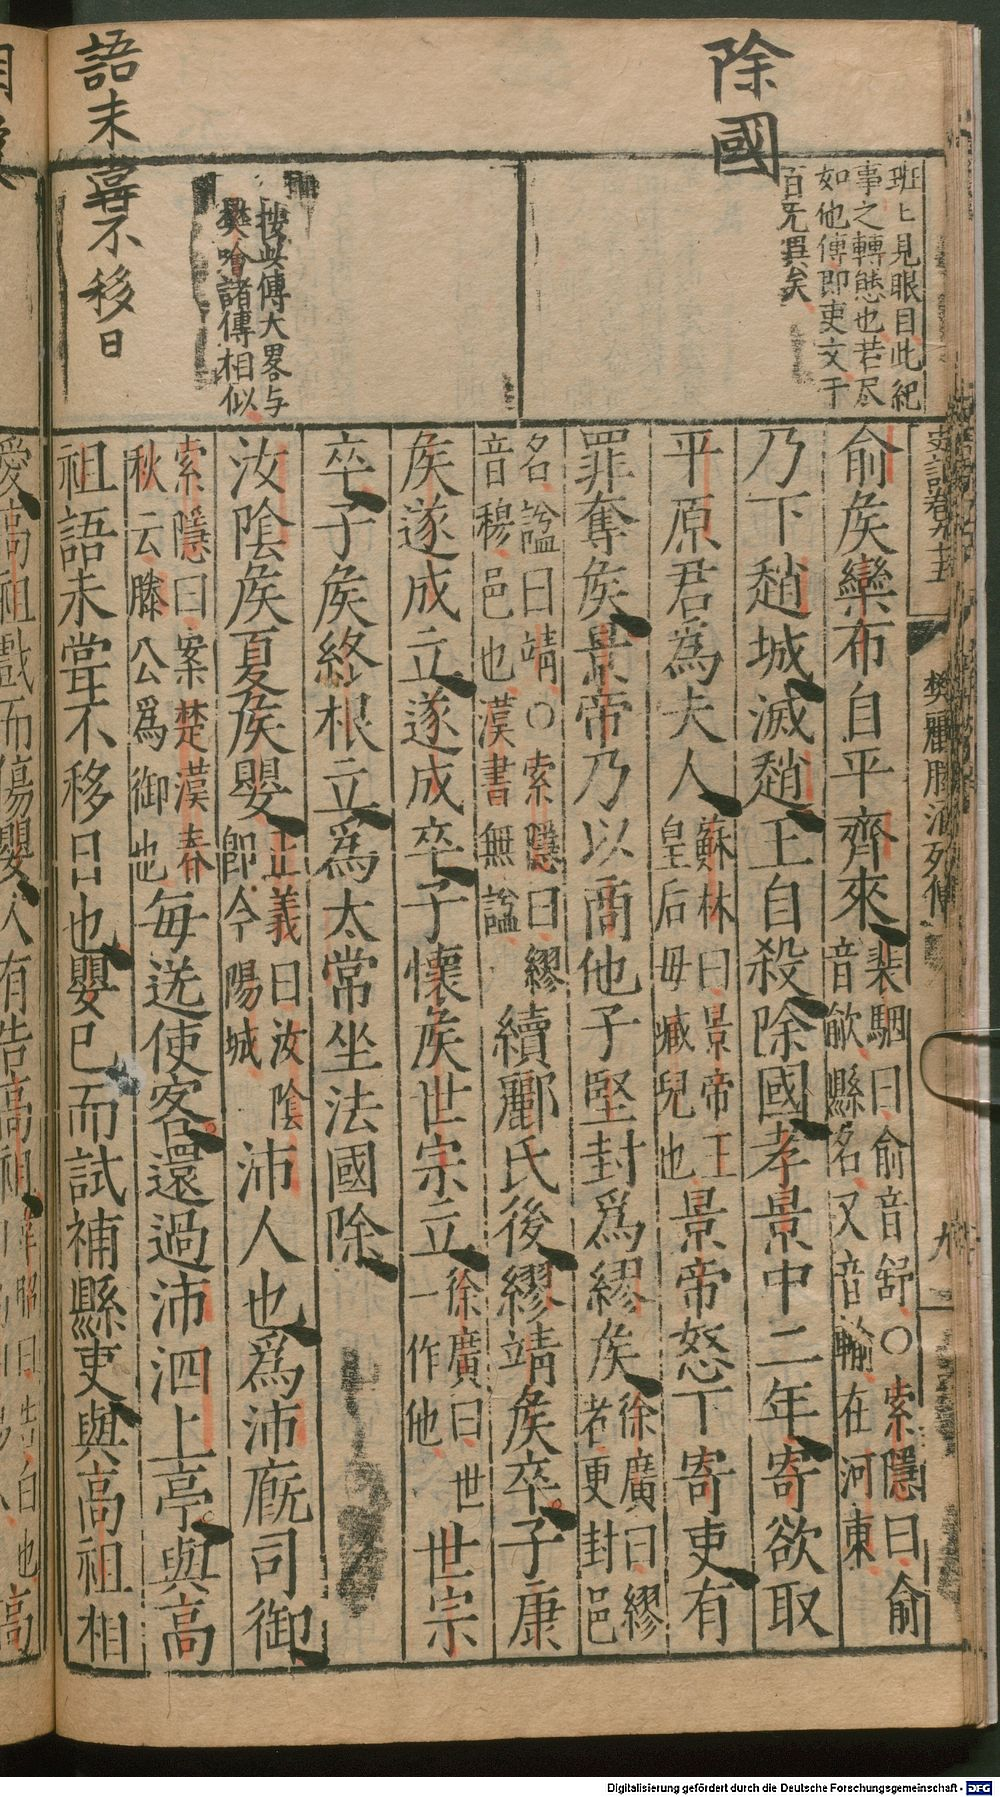 除國
班上見眼目此紀
事之轉態也若尽
如他傳即吏文于
百旡異矣
按此傳大畧与
樊噲諸傳相似
語未甞不移日
俞矦欒布自平齊來裴駰曰俞音舒○索隱曰俞音歃縣名又音輸在河東
乃下趙城滅趙王自殺除國孝景中二年寄欲取
平原君為夫人蘇林曰景帝王皇后毋臧兒也景帝怒下寄吏有
罪奪矦景帝乃以商他子堅封爲繆矦徐廣曰繆者更封邑
名諡曰靖○索隱曰繆音穆邑也漢書無諡續酈氏後繆靖矦卒子康
矦遂成立遂成卒子懷矦世宗立徐廣曰世一作他世宗
卒子矦終根立為太常坐法國除
汝陰矦夏矦嬰正義曰汝陰即今陽城沛人也爲沛廐司御
索隱曰案楚漢春秋云滕公爲御也每送使客還過沛泗上亭與高
祖語未甞不移日也嬰已而試補縣吏與高祖相
史記卷九十五
樊酈滕灌列傳
九
愛高祖戲而傷嬰人有告高祖韋昭曰告白也高
Digitalisierung gefördert durch die Deutsche Forschungsgemeinschaft - DFG